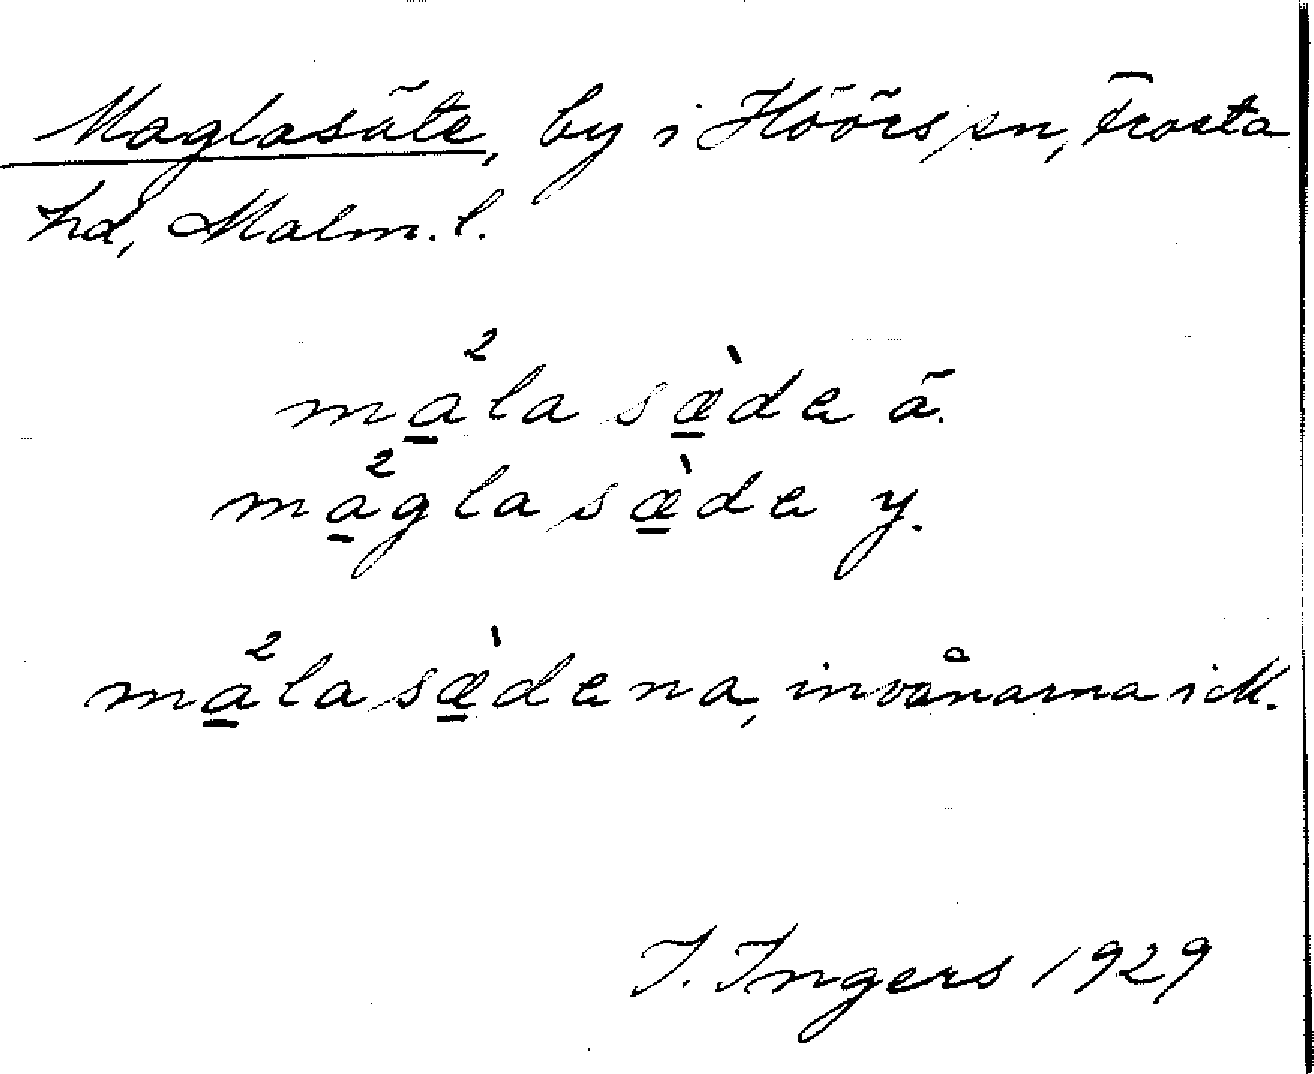 Maglasäte, by i Höörs sn, Frosta
hd, Malm. l.
ma̱²la sæ̱̀de ä.
ma̱²gla sæ̱̀de y.
ma̱²la sæ̱̀dena, invånarna i M.
I. Ingers 1929